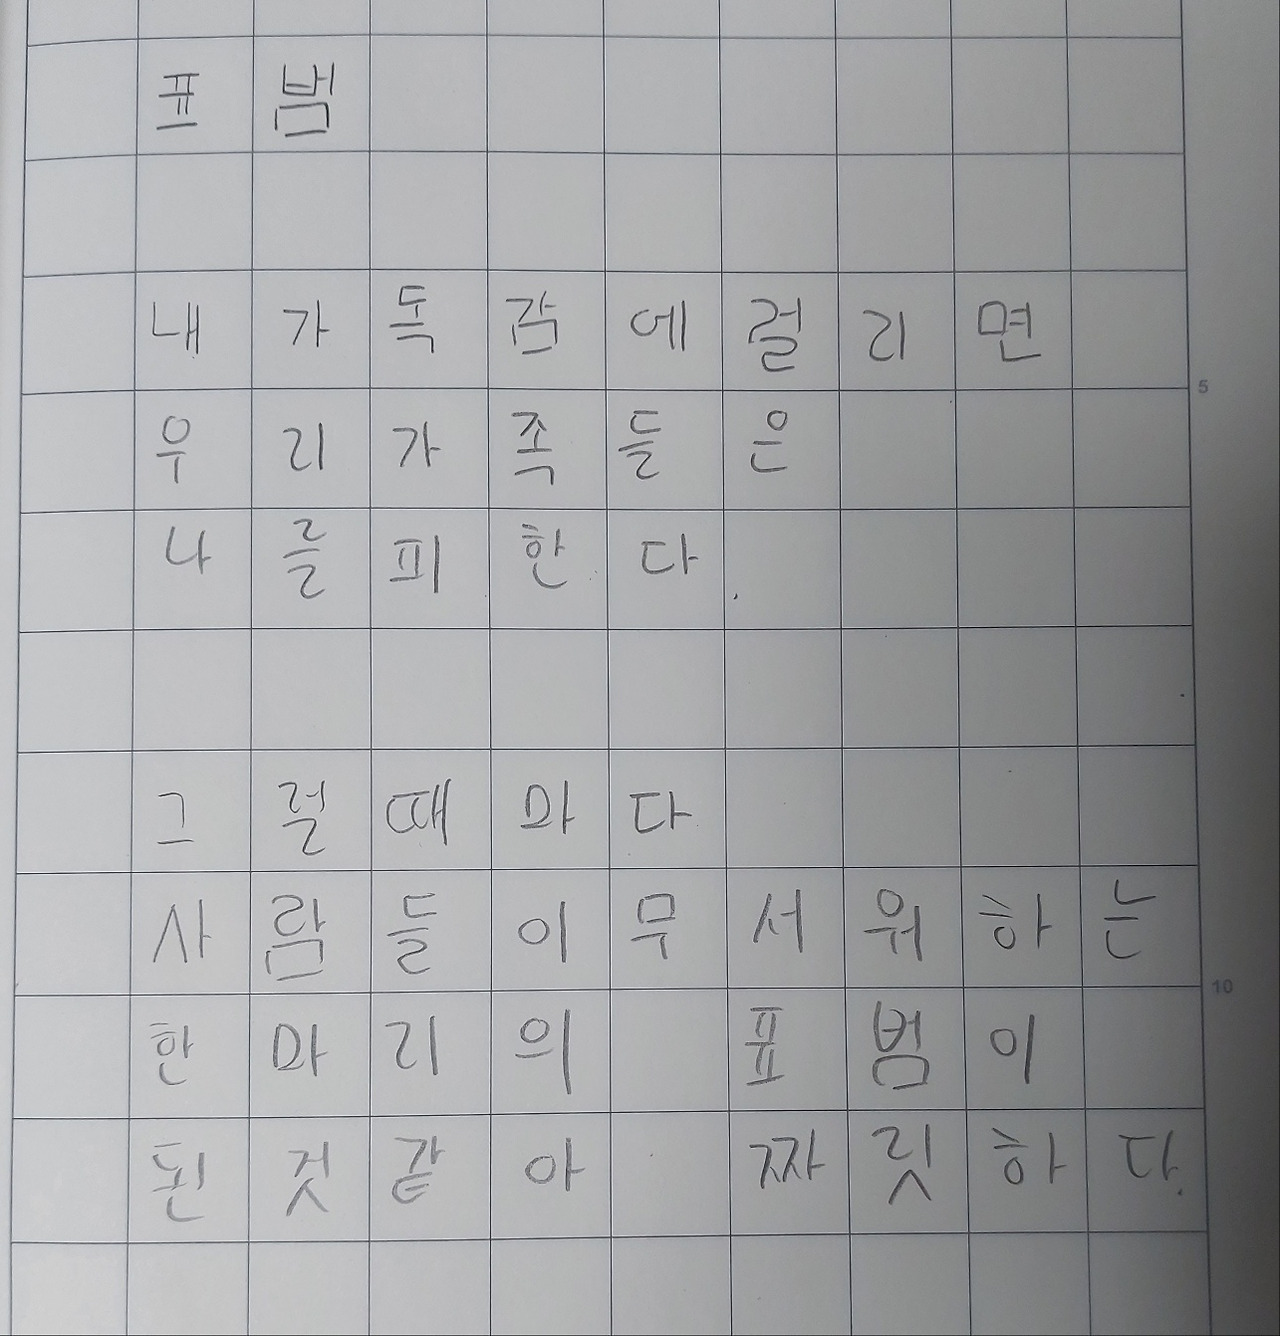 표범
내가독감에걸리면
우리가족들은
나를피한다.
그럴때마다
5
사람들이무서워하는
한마리의 표범이
10
된것같아 짜릿하다.